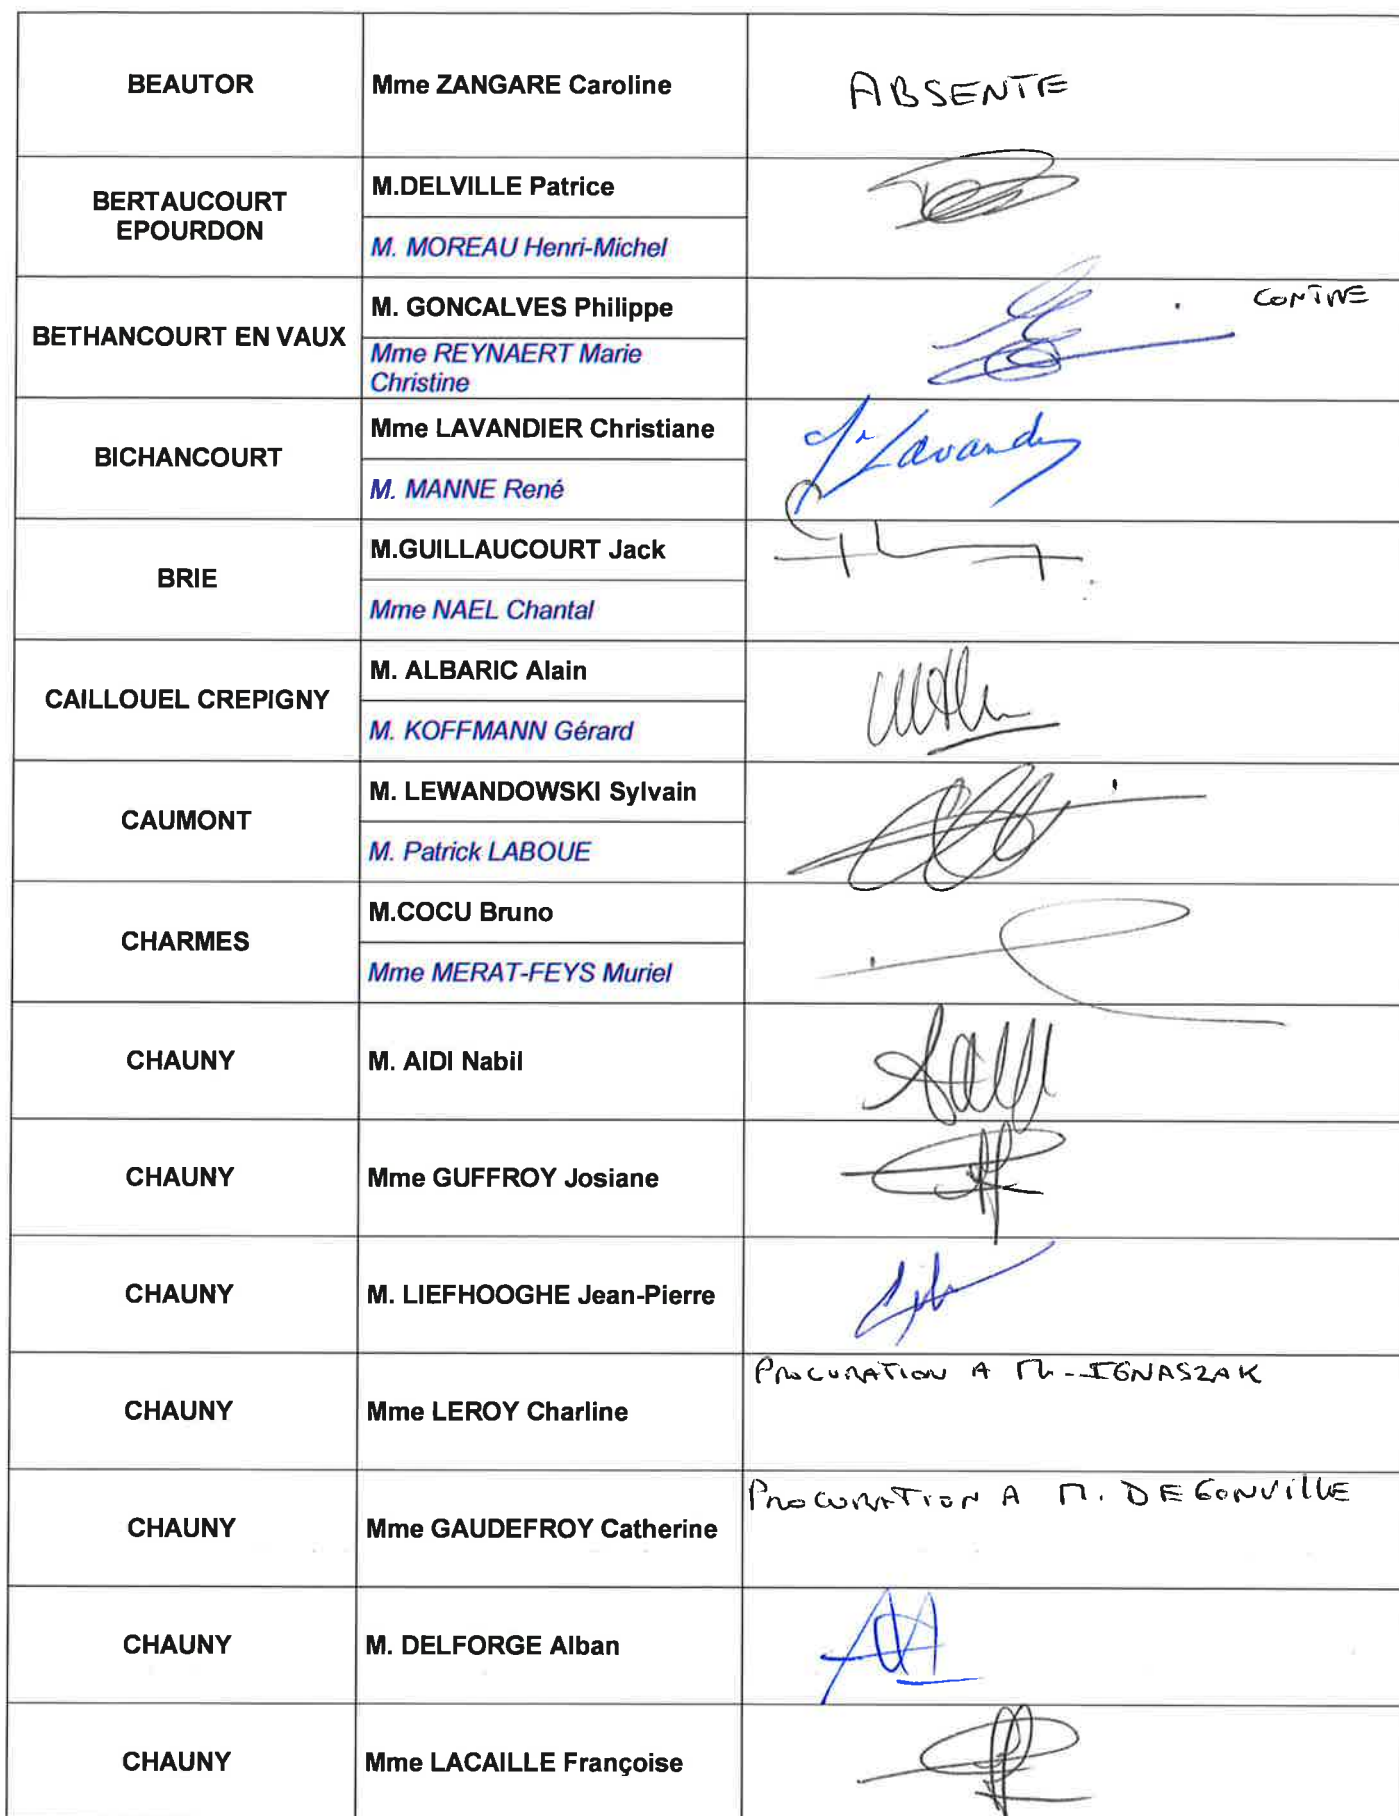 BEAUTOR
Mme ZANGARE Caroline
ABSENTE
BERTAUCOURT
EPOURDON
M.DELVILLE Patrice
M. MOREAU Henri-Michel
BETHANCOURT EN VAUX
M. GONCALVES Philippe
CONTRE
Mme REYNAERT Marie
Christine
BICHANCOURT
Mme LAVANDIER Christiane
M. MANNE René
BRIE
M.GUILLAUCOURT Jack
Mme NAEL Chantal
CAILLOUEL CREPIGNY
M. ALBARIC Alain
M. KOFFMANN Gérard
CAUMONT
M. LEWANDOWSKI Sylvain
M. Patrick LABOUE
CHARMES
M.COCU Bruno
Mme MERAT-FEYS Muriel
CHAUNY
M. AIDI Nabil
CHAUNY
Mme GUFFROY Josiane
CHAUNY
M. LIEFHOOGHE Jean-Pierre
CHAUNY
Mme LEROY Charline
PROCURATION A M. IGNASZAK
CHAUNY
Mme GAUDEFROY Catherine
PROCURATION A M. DEGONVILLE
CHAUNY
M. DELFORGE Alban
CHAUNY
Mme LACAILLE Françoise